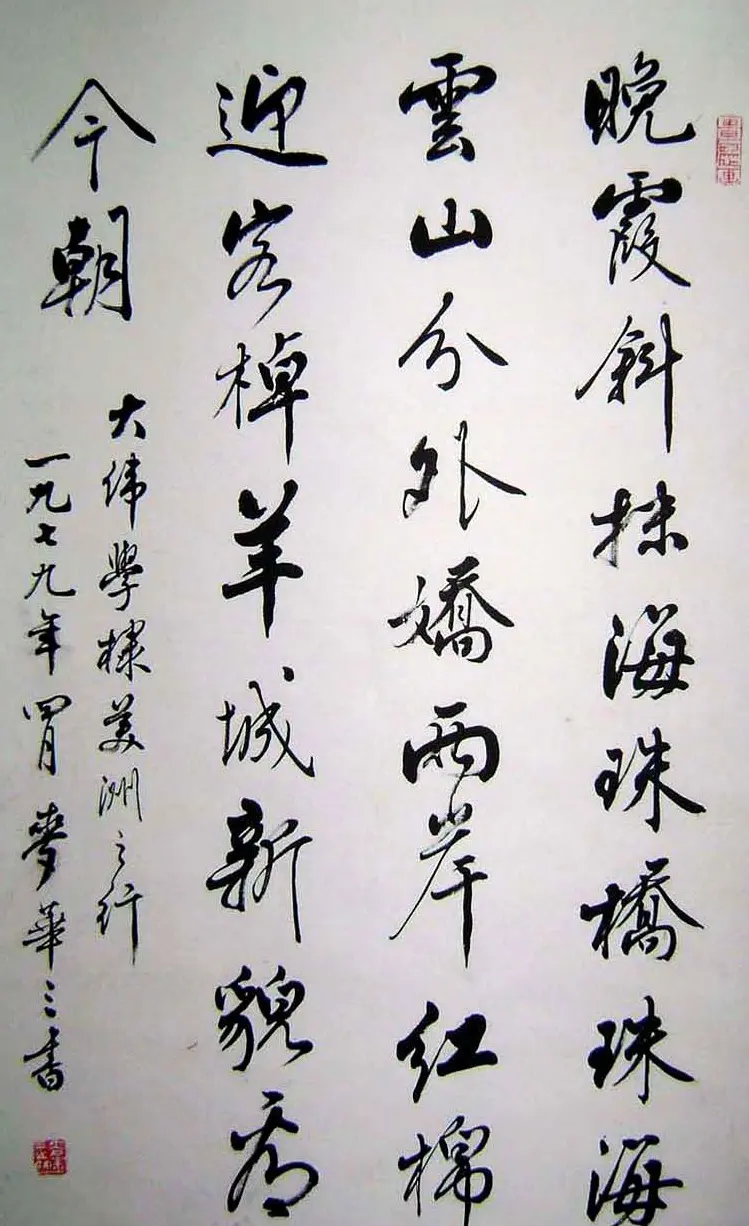 晚霞斜抹海珠橋珠海
雲山分外嬌兩岸紅棉
迎客棹羊城新貌看
今朝
大偉學棣美洲之行
一九七九年四月麥華三書